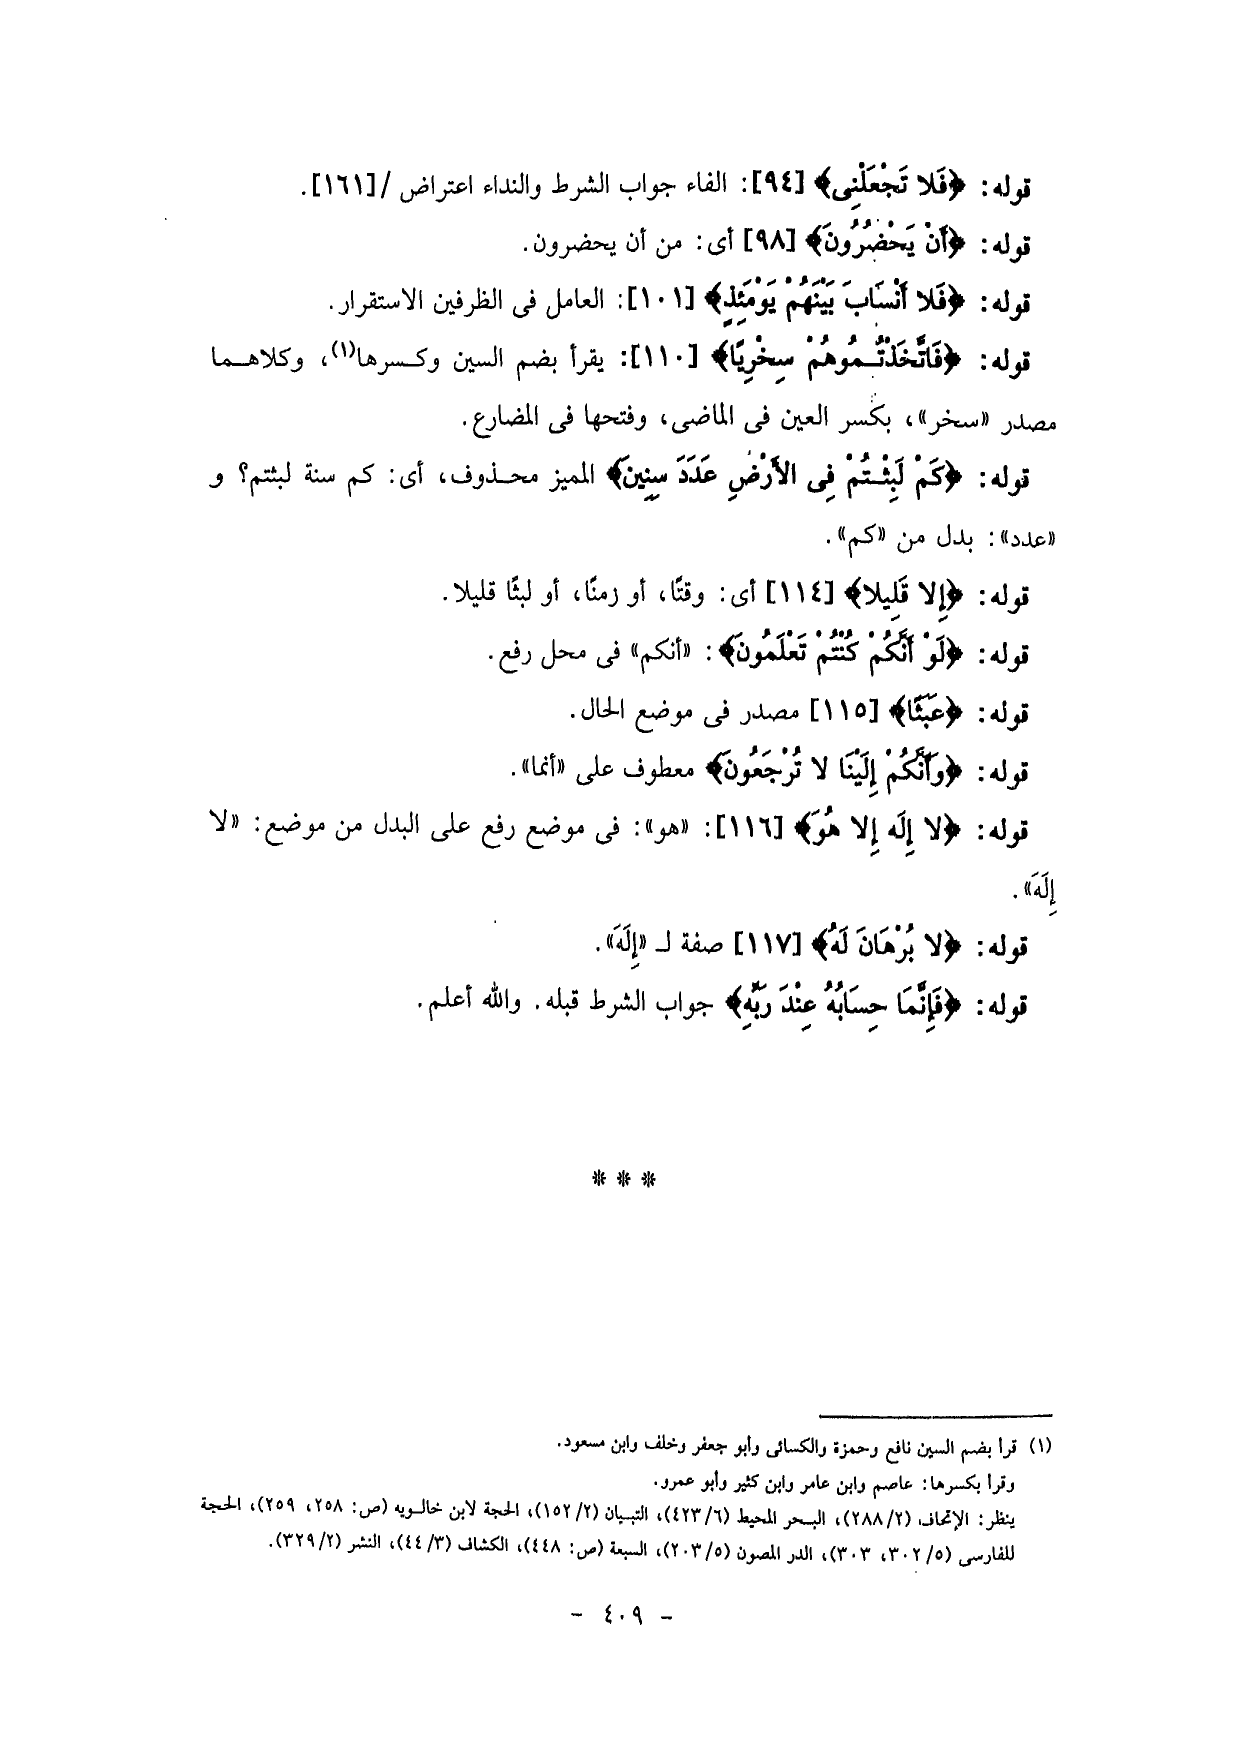 قوله: ﴿فَلا تَجْعَلْنِى﴾ [٩٤]: الفاء جواب الشرط والنداء اعتراض /[١٦١].
قوله: ﴿أَنْ يَحْضُرُونَ﴾ [٩٨] أى: من أن يحضرون.
قوله: ﴿فَلا أَنْسَابَ بَيْنَهُمْ يَوْمَئِذٍ﴾ [١٠١]: العامل فى الظرفين الاستقرار.
قوله: ﴿فَاتَّخَذْتُمُوهُمْ سِخْرِيًا﴾ [١١٠]: يقرأ بضم السين وكسرها(١)، وكلاهما
مصدر «سخر»، بكسر العين فى الماضى، وفتحها فى المضارع.
قوله: ﴿كَمْ لَبِثْتُمْ فِى الأَرْضِ عَدَدَ سِنِينَ﴾ المميز محذوف، أى: كم سنة لبثتم؟ و
«عدد»: بدل من «كم».
قوله: ﴿إِلا قَلِيلا﴾ [١١٤] أى: وقتًا، أو زمنًا، أو لبثًا قليلا.
قوله: ﴿لَوْ أَنَّكُمْ كُنْتُمْ تَعْلَمُونَ﴾: «أنكم» فى محل رفع.
قوله: ﴿عَبَثًا﴾ [١١٥] مصدر فى موضع الحال.
قوله: ﴿وَأَنَّكُمْ إِلَيْنَا لا تُرْجَعُونَ﴾ معطوف على «أنما».
قوله: ﴿لا إِلَه إِلا هُوَ﴾ [١١٦]: «هو»: فى موضع رفع على البدل من موضع: «لا
إِلَهَ».
قوله: ﴿لا بُرْهَانَ لَهُ﴾ [١١٧] صفة لـ «إِلَهَ».
قوله: ﴿فَإِنَّمَا حِسَابُهُ عِنْدَ رَبِّهِ﴾ جواب الشرط قبله. والله أعلم.
* * *
(١) قرأ بضم السين نافع وحمزة والكسائى وأبو جعفر وخلف وابن مسعود.
وقرأ بكسرها: عاصم وابن عامر وابن كثير وأبو عمرو.
ينظر: الإتحاف (٢٨٨/٢)، البحر المحيط (٤٢٣/٦)، التبيان (١٥٢/٢)، الحجة لابن خالويه (ص: ٢٥٨، ٢٥٩)، الحجة
للفارسى (٣٠٢/٥، ٣٠٣)، الدر المصون (٢٠٣/٥)، السبعة (ص: ٤٤٨)، الكشاف (٤٤/٣)، النشر (٣٢٩/٢).
- ٤٠٩ -